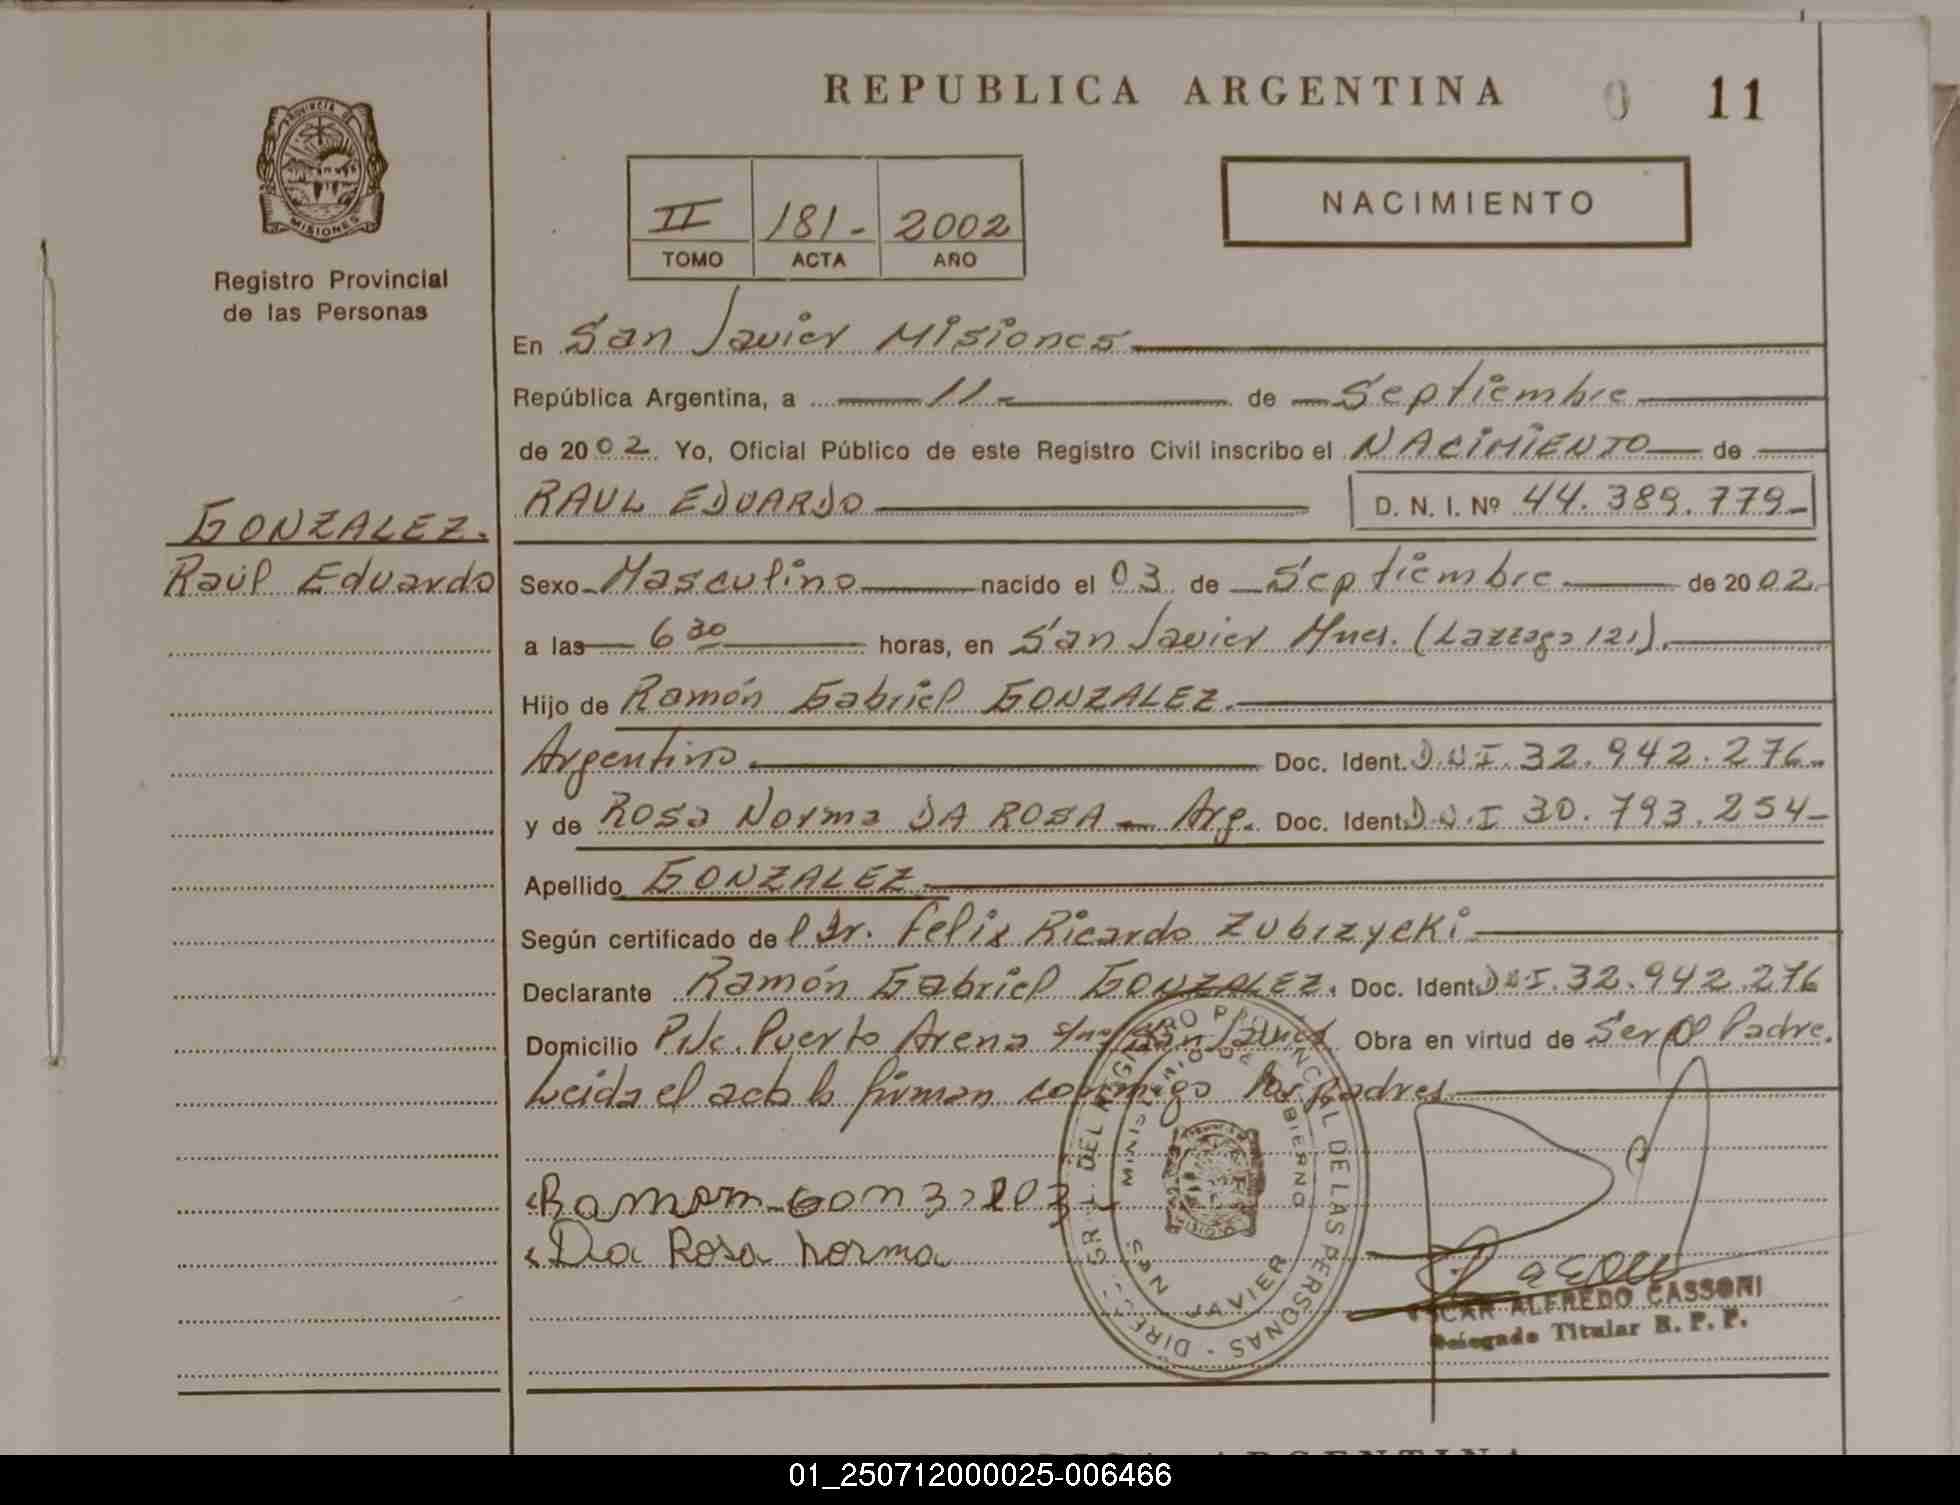 REPUBLICA ARGENTINA 0 11
PROVINCIA DE
MISIONES
Registro Provincial
de las Personas
II 181- 2002
TOMO ACTA AÑO
NACIMIENTO
GONZALEZ.
Raúl Eduardo
En San Javier Misiones
República Argentina, a 11 de Septiembre
de 2002 Yo, Oficial Público de este Registro Civil inscribo el NACIMIENTO de
RAUL EDUARDO D. N. I. Nº 44.389.779-
Sexo Masculino nacido el 03 de Septiembre de 2002
a las 6 30 horas, en San Javier Mnes. ( 121).
Hijo de Ramón Gabriel GONZALEZ.
Argentino. Doc. Ident. D.N.I. 32.942.276-
y de Rosa Norma DA ROSA - Arg. Doc. Ident. D.N.I 30.793.254-
Apellido GONZALEZ
Según certificado del Dr. Felix Ricardo Zubrzycki
Declarante Ramón Gabriel GONZALEZ. Doc. Ident. DNI. 32.942.276
Domicilio Puerto Arena s/nº San Javier Obra en virtud de Ser el Padre.
Leida el acta la firman conmigo los padres
Ramom Gonzalez
Da Rosa Norma
DEL REGISTRO PROVINCIAL DE LAS PERSONAS
MINISTERIO DE GOBIERNO
SAN JAVIER
OSCAR ALFREDO CASSONI
Delegado Titular R. P. P.
ARGENTINA
01_250712000025-006466